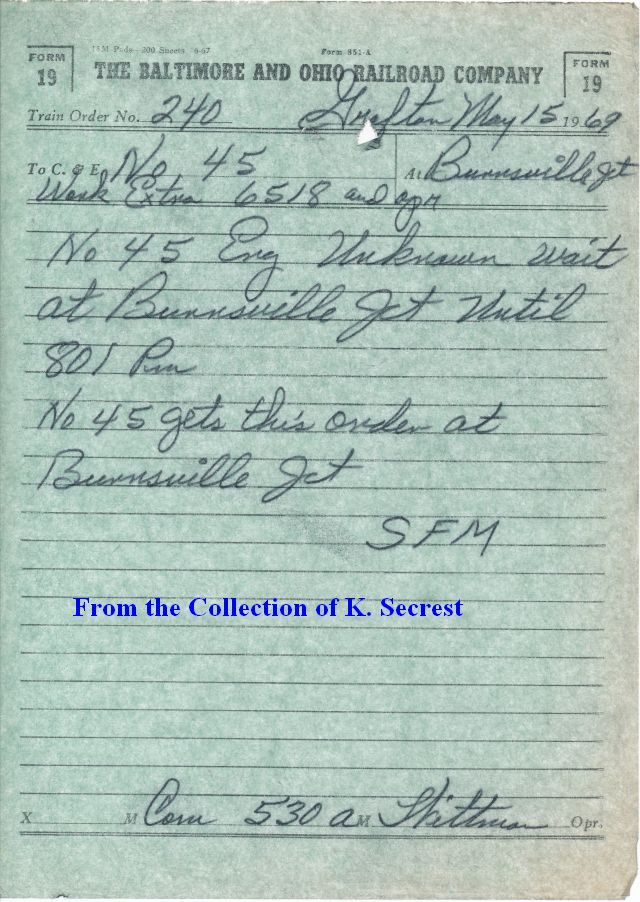 15M Pads - 200 Sheets 6-67 Form 851-A
FORM 19 THE BALTIMORE AND OHIO RAILROAD COMPANY FORM 19
Train Order No. 240 Grafton May 15 1969
To C. & E. No 45 At Burnsville Jct
Work Extra 6518 and opr
No 45 Eng Unknown wait
at Burnsville Jct Until
801 Pm
No 45 gets this order at
Burnsville Jct
SFM
From the Collection of K. Secrest
X M Com 530 a M Opr.